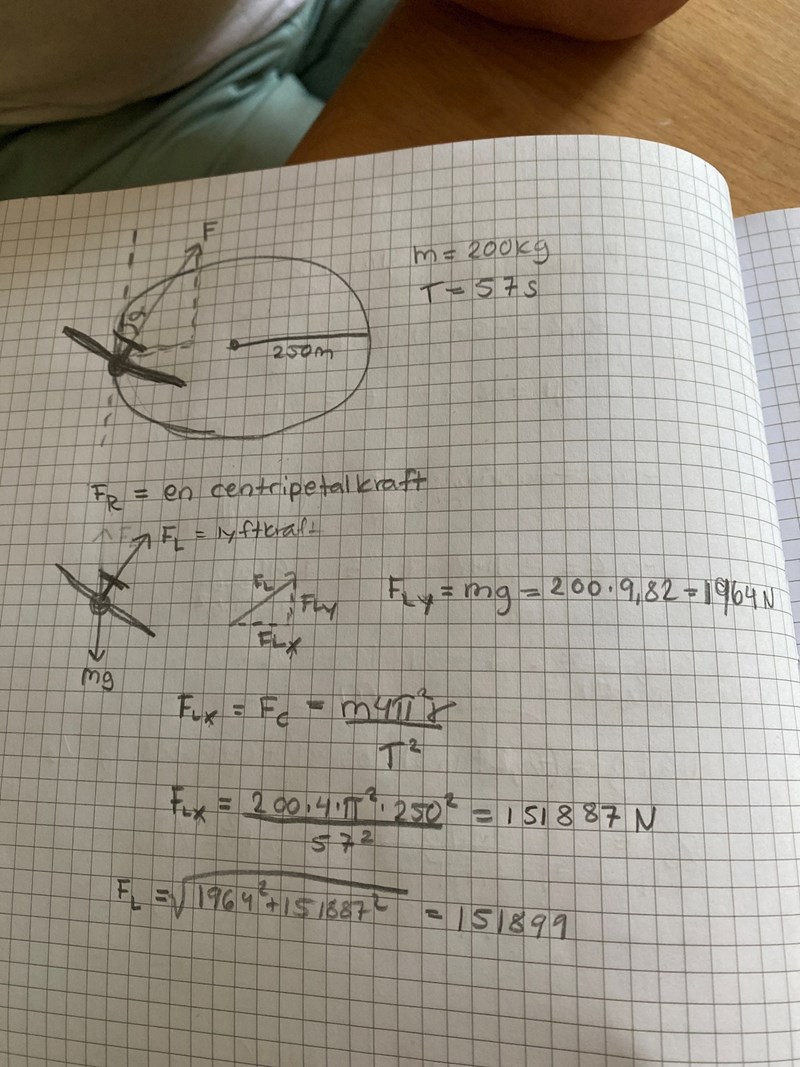 F
m = 200kg
T = 57s
α
250m
F_R = en centripetalkraft
F_L = lyftkraft
F_L
F_Ly
F_Lx
F_Ly = mg = 200·9,82 = 1964N
mg
F_Lx = F_c = m4π²r / T²
F_Lx = 200·4·π²·250² / 57² = 151887 N
F_L = √(1964²+151887²) = 151899